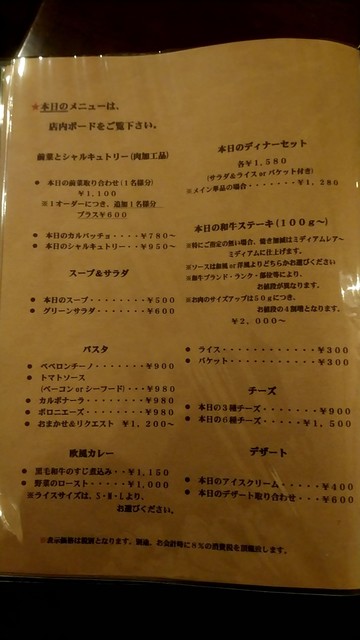 ★本日のメニューは、
店内ボードをご覧下さい。
前菜とシャルキュトリー(肉加工品)
● 本日の前菜取り合わせ(1名様分)
￥1,100
※1オーダーにつき、追加1名様分
プラス￥600
● 本日のカルパッチョ・・・・￥780～
● 本日のシャルキュトリー・・￥950～
スープ&サラダ
● 本日のスープ・・・・・・￥500
● グリーンサラダ・・・・・￥600
パスタ
● ペペロンチーノ・・・・・・・￥900
● トマトソース
(ベーコン or シーフード)・・・￥980
● カルボナーラ・・・・・・・・￥980
● ボロニエーズ・・・・・・・・￥980
● おまかせ&リクエスト ￥1,200～
欧風カレー
● 黒毛和牛のすじ煮込み・・￥1,150
● 野菜のロースト・・・・・￥1,000
※ライスサイズは、S・M・Lより、
お選びください。
本日のディナーセット
各￥1,580
(サラダ&ライス or バケット付き)
※メイン単品の場合・・・・・・・￥1,280
本日の和牛ステーキ(100g～)
※特にご指定の無い場合、焼き加減はミディアムレア～
ミディアムに仕上げます。
※ソースは和風 or 洋風よりどちらかお選びください
※和牛ブランド・ランク・部位等により、
お値段が異なります。
※お肉のサイズアップは50gにつき、
お値段の4割増となります。
￥2,000～
● ライス・・・・・・・・・・・・￥300
● バケット・・・・・・・・・・・￥300
チーズ
● 本日の3種チーズ・・・・・・・￥900
● 本日の6種チーズ・・・・・・￥1,500
デザート
● 本日のアイスクリーム・・・・・￥400
● 本日のデザート取り合わせ・・・￥600
※表示価格は税別となります。別途、お会計時に8%の消費税を頂戴致します。